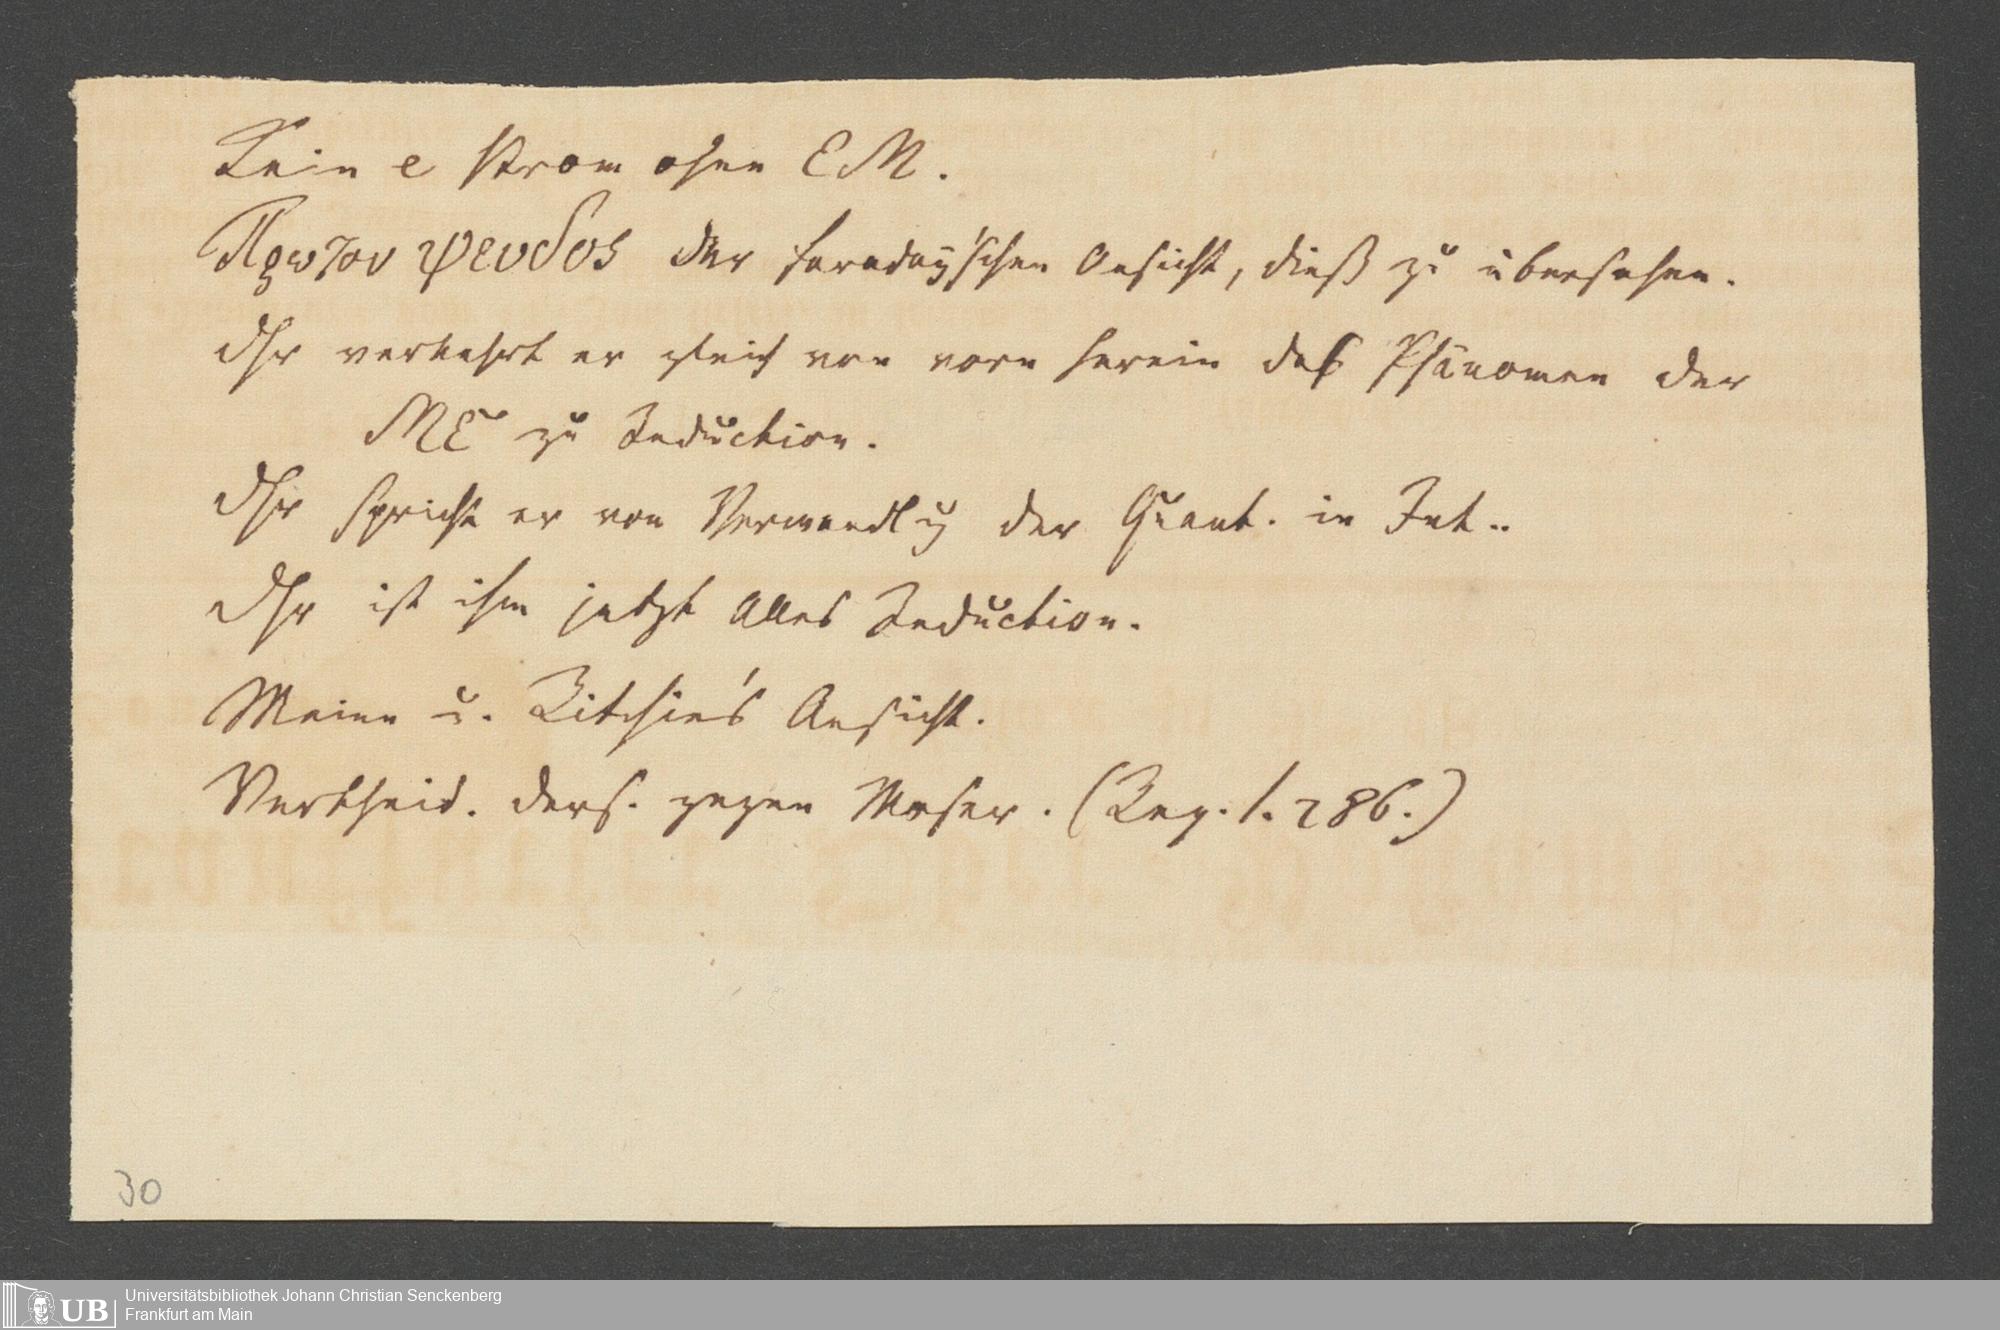 Kein e Strom ohne EM.
Πρωτον ψευδος der faraday'schen Ansicht, dieß zu übersehen.
Dhr verkehrt er gleich von vorn herein das Phänomen der
ME zu Induction.
Dhr spricht er von Verwandlg der Quant. in Int..
Dhr ist ihm jetzt Alles Induction.
Meine u. Ritchie's Ansicht.
Vertheid. ders. gegen Moser. (Rep. 1. 286.)
30
UB
Universitätsbibliothek Johann Christian Senckenberg
Frankfurt am Main